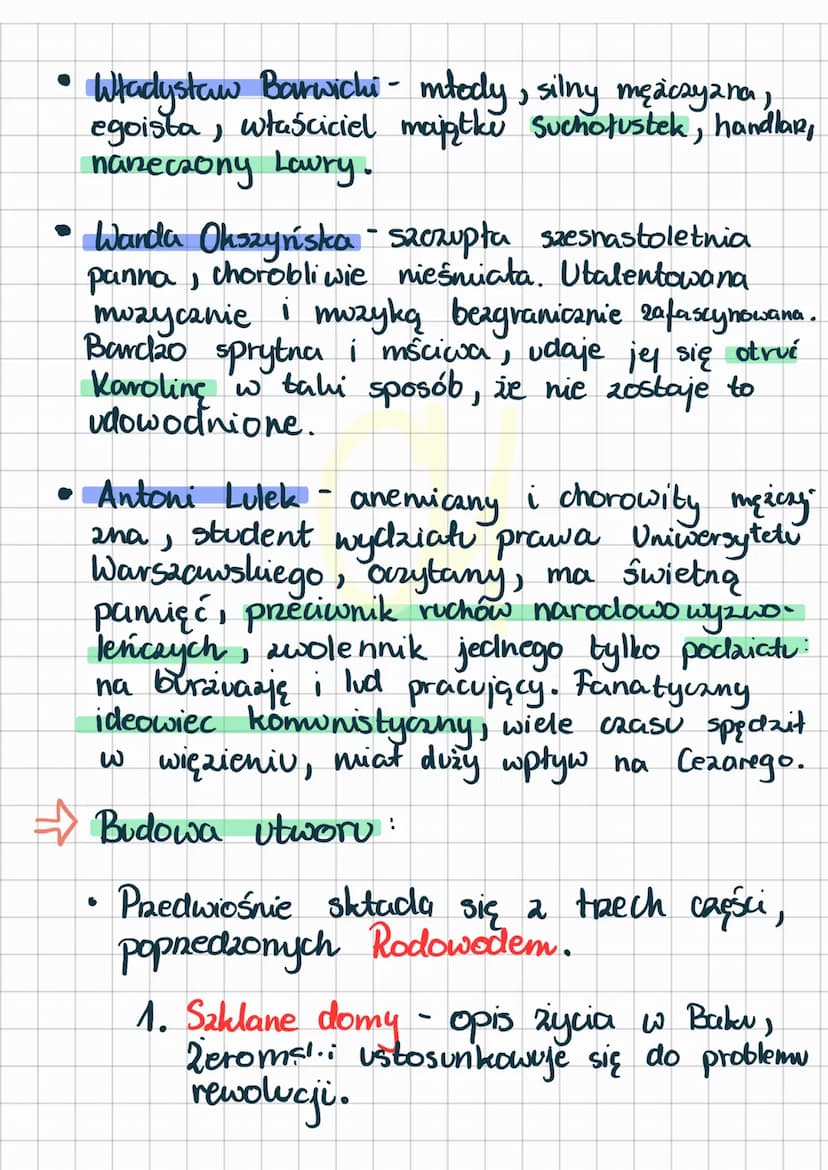 • Władysław Barwicki - młody, silny mężczyzna,
egoista, właściciel majątku Suchołustek, handlarz,
narzeczony Laury.
• Wanda Okszyńska - szczupła szesnastoletnia
panna, chorobliwie nieśmiała. Utalentowana
muzycznie i muzyką bezgranicznie zafascynowana.
Bardzo sprytna i mściwa, udaje jej się otruć
Karolinę w taki sposób, że nie zostaje to
udowodnione.
• Antoni Lulek - anemiczny i chorowity mężczy-
zna, student wydziału prawa Uniwersytetu
Warszawskiego, oczytany, ma świetną
pamięć, przeciwnik ruchów narodowowyzwo-
leńczych, zwolennik jednego tylko podziału:
na burżuazję i lud pracujący. Fanatyczny
ideowiec komunistyczny, wiele czasu spędził
w więzieniu, miał duży wpływ na Cezarego.
⇒ Budowa utworu:
• Przedwiośnie składa się z trzech części,
poprzedzonych Rodowodem.
1. Szklane domy - opis życia w Baku,
Żeromski ustosunkowuje się do problemu
rewolucji.